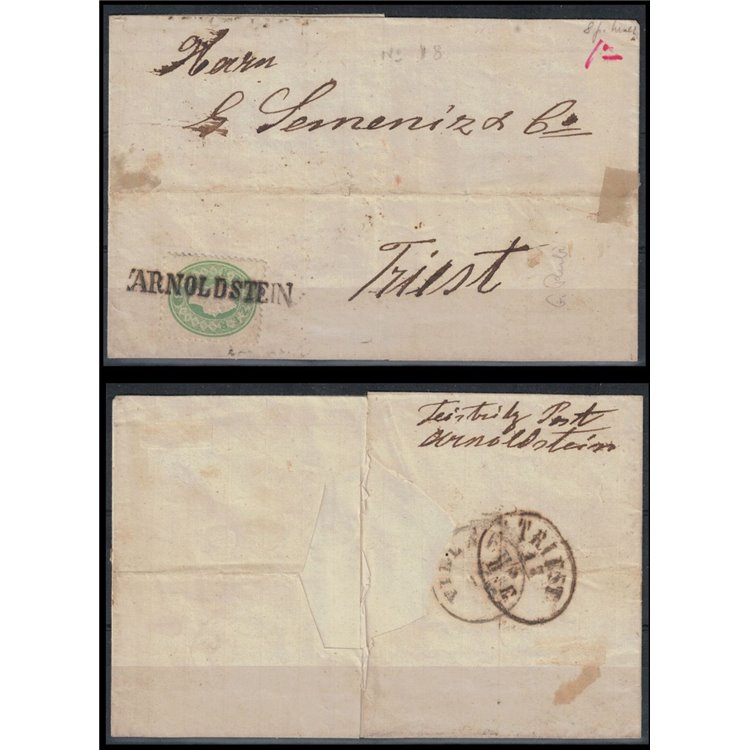 Herrn
G. Semeniz & Co
Triest
ARNOLDSTEIN
No 18
Feistritz Post
Arnoldstein
VILLACH
TRIEST